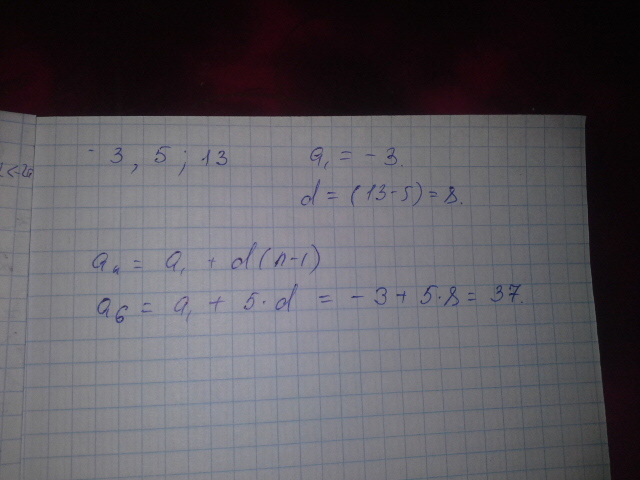 -3, 5; 13
a₁ = -3.
d = (13-5) = 8.
aₙ = a₁ + d(n-1)
a₆ = a₁ + 5·d = -3 + 5·8 = 37.